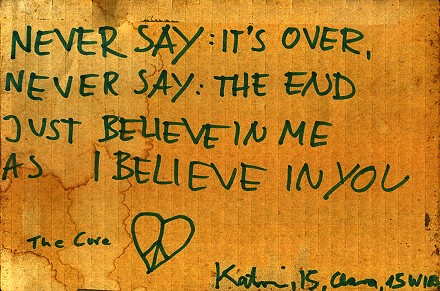 NEVER SAY: IT'S OVER,
NEVER SAY: THE END
JUST BELIEVE IN ME
AS I BELIEVE IN YOU
The Cure
Katrin, 15, Clara, 15 WIEN